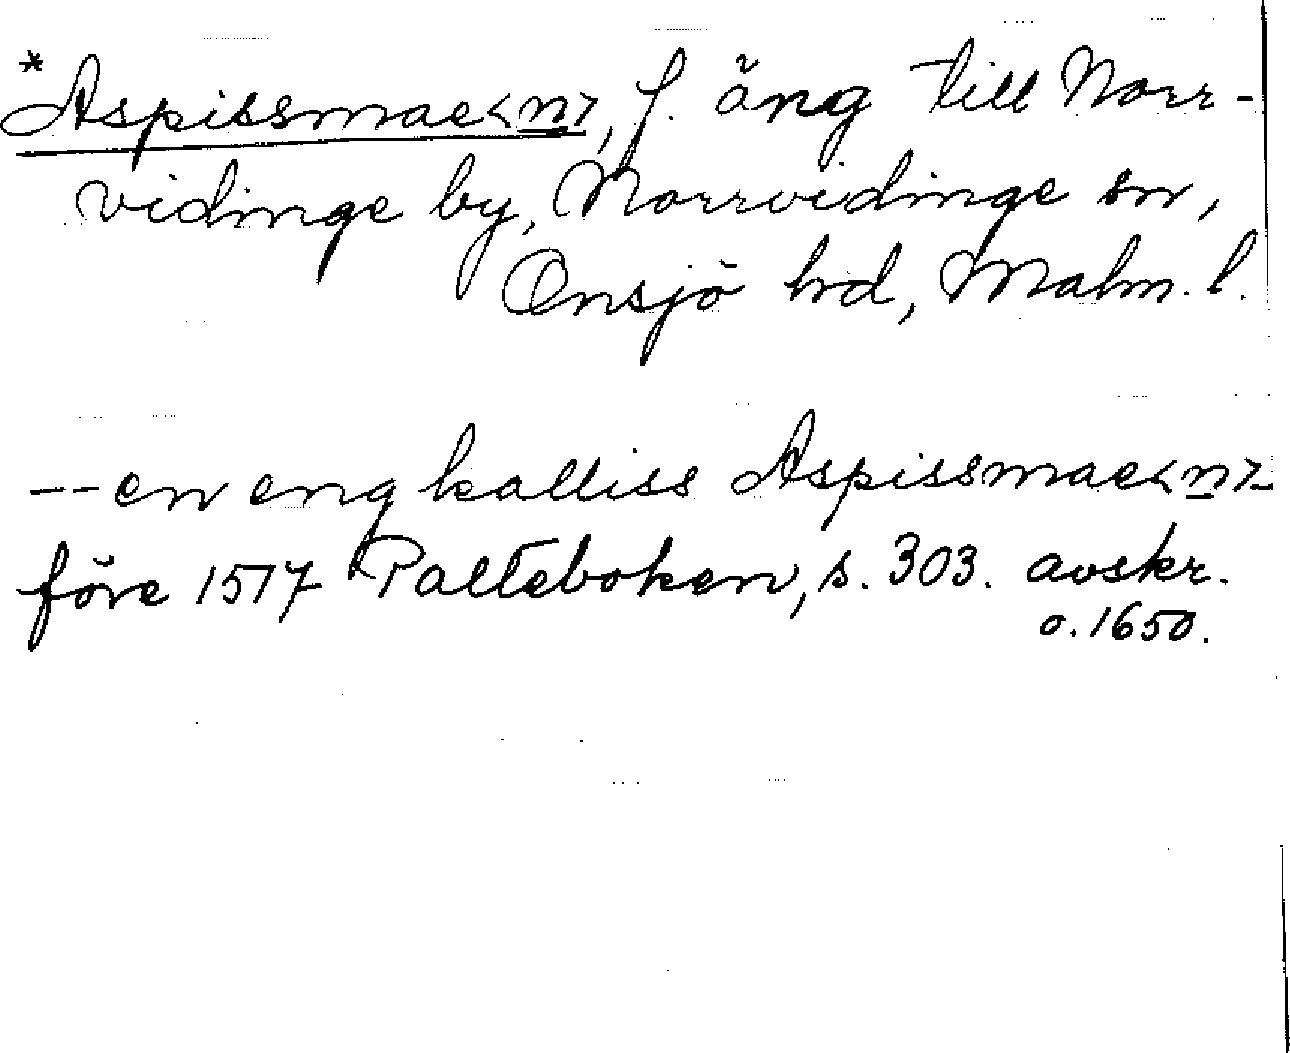 *Aspissmae<n>, f. äng till Norr-
vidinge by, Norrvidinge sn,
Onsjö hd, Malm. l.
-- en eng kalliss Aspissmae<n>
före 1517 Palteboken, s. 303. avskr.
o. 1650.